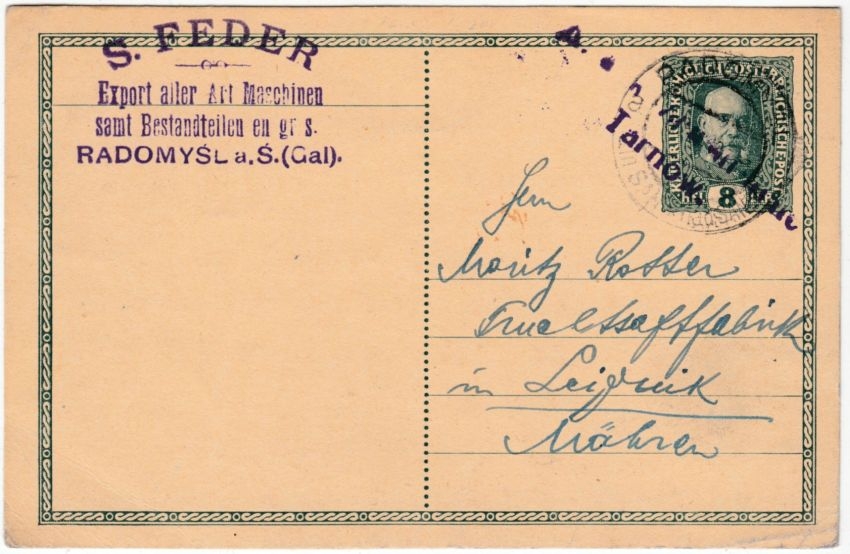 S. FEDER
Export aller Art Maschinen
samt Bestandteilen en gr s.
RADOMYŚL a. Ś. (Gal).
Tarnow.
8
Herrn
Moritz Rotter
Fruchtsaftfabrik
in Leipnik
Mähren